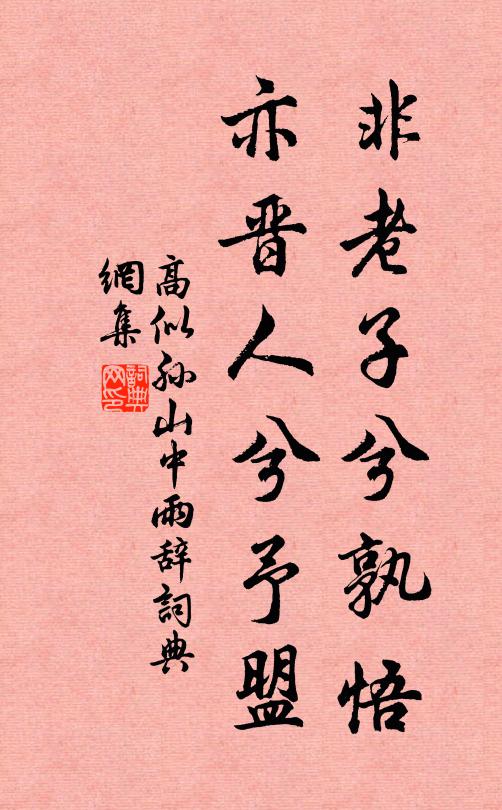 非老子兮孰悟
亦晋人兮予盟
高似孙山中雨辞詞典
網集
詞典
网印